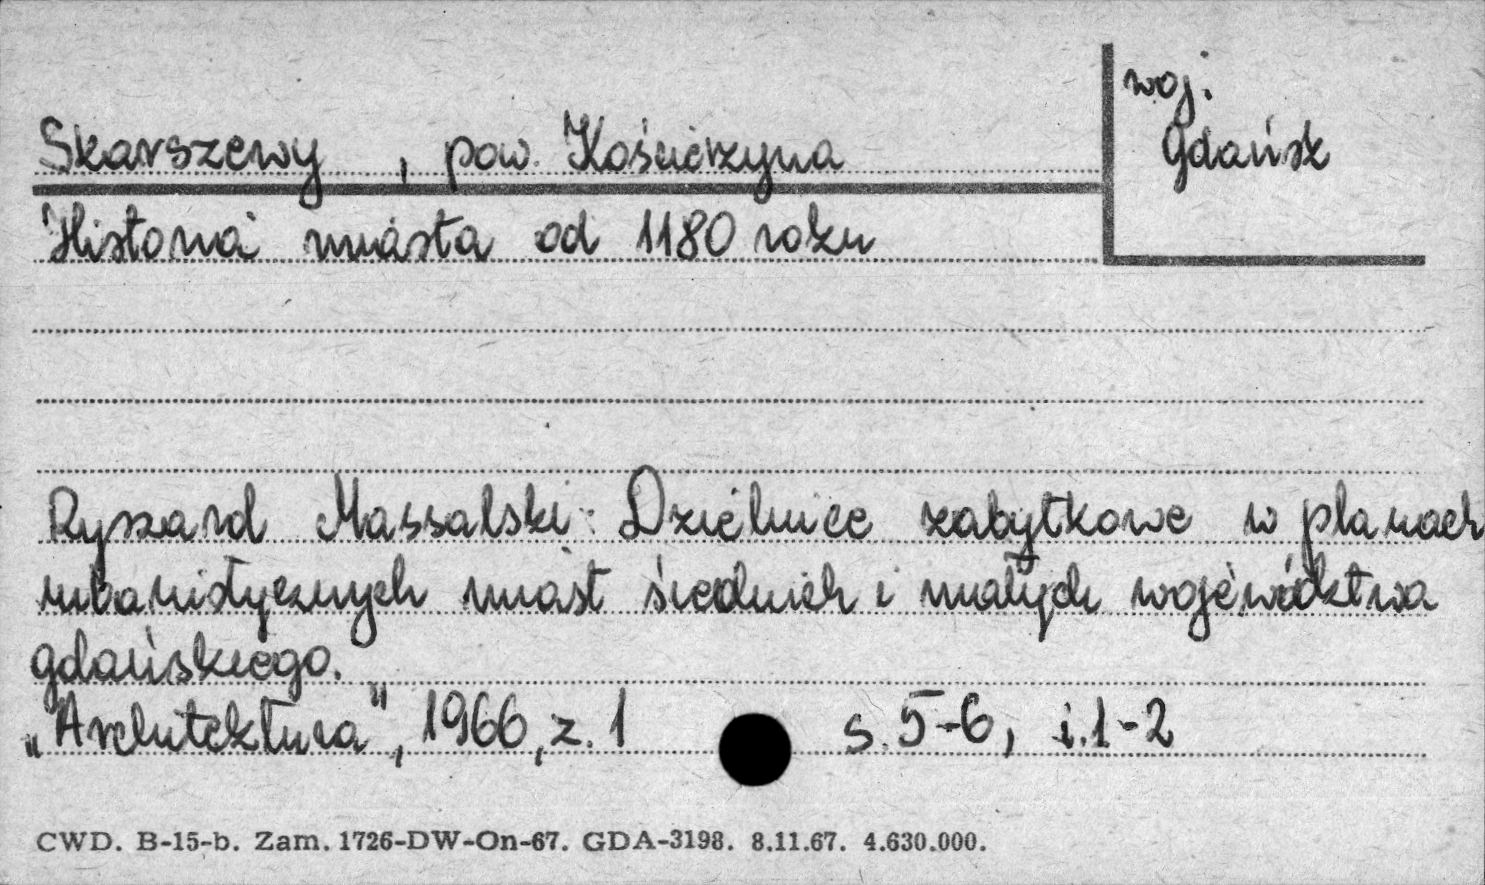 woj.
Gdańsk
Skarszewy , pow. Kościerzyna
Historia miasta od 1180 roku
Ryszard Massalski: Dzielnice zabytkowe w planach
urbanistycznych miast średnich i małych województwa
gdańskiego.
„Architektura", 1966, z. 1 s. 5-6, i. 1-2
CWD. B-15-b. Zam. 1726-DW-On-67. GDA-3198. 8.11.67. 4.630.000.